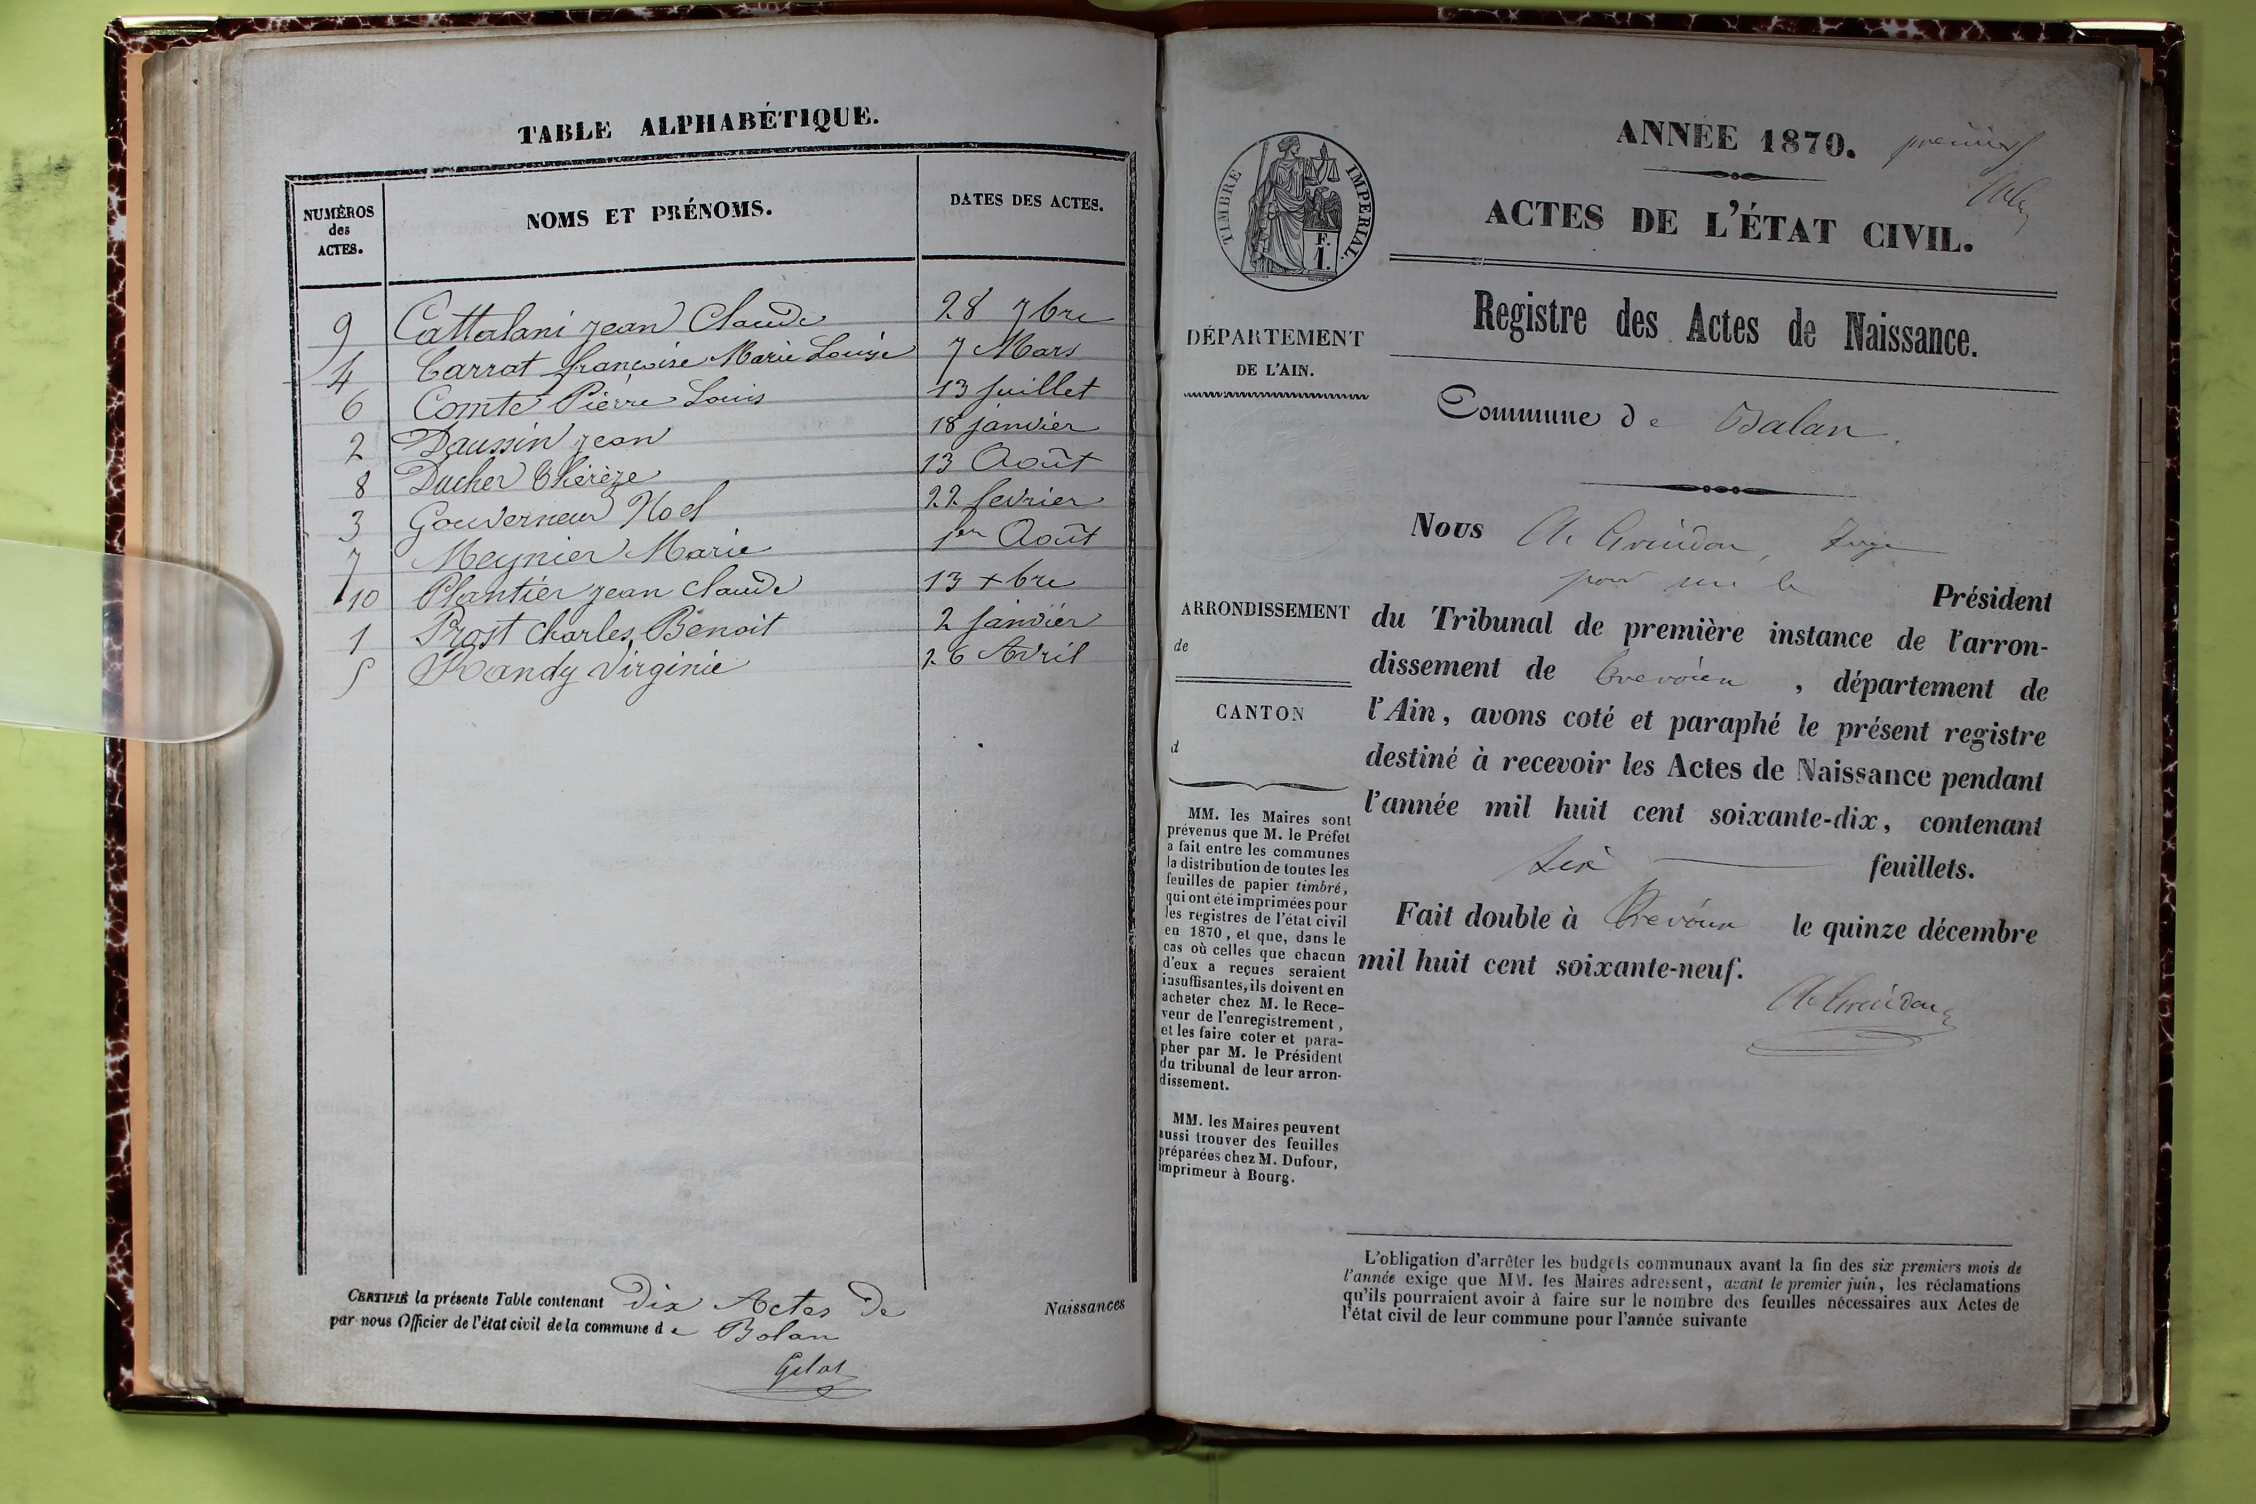 TABLE ALPHABÉTIQUE.
NUMÉROS des ACTES. NOMS ET PRÉNOMS. DATES DES ACTES.
9 Cattalani jean Claude 28 7bre
4 Carrat françoise Marie Louise 7 Mars
6 Comte Pierre Louis 13 Juillet
2 Daussin jean 18 janvier
8 Ducher Thérèze 13 Août
3 Gouverneur Noel 22 fevrier
7 Meynier Marie 1er Août
10 Plantier jean Claude 13 xbre
1 Prost Charles, Benoit 2 janvier
5 Randy Virginie 26 Avril
CERTIFIÉ la présente Table contenant Dix Actes De Naissances
par nous Officier de l'état civil de la commune de Balan
ANNÉE 1870. premier
ACTES DE L'ÉTAT CIVIL.
TIMBRE IMPERIAL.
F.
1.
Registre des Actes de Naissance.
DÉPARTEMENT
DE L'AIN.
Commune de Balan.
Nous A. Grindon, Juge
pour le Président
du Tribunal de première instance de l'arron-
dissement de Trévoux, département de
l'Ain, avons coté et paraphé le présent registre
destiné à recevoir les Actes de Naissance pendant
l'année mil huit cent soixante-dix, contenant
feuillets.
Fait double à Trévoux le quinze décembre
mil huit cent soixante-neuf.
A. Grindon
ARRONDISSEMENT
de
CANTON
d
MM. les Maires sont
prévenus que M. le Préfet
a fait entre les communes
la distribution de toutes les
feuilles de papier timbré,
qui ont été imprimées pour
les registres de l'état civil
en 1870, et que, dans le
cas où celles que chacun
d'eux a reçues seraient
insuffisantes, ils doivent en
acheter chez M. le Rece-
veur de l'enregistrement,
et les faire coter et para-
pher par M. le Président
du tribunal de leur arron-
dissement.
MM. les Maires peuvent
aussi trouver des feuilles
préparées chez M. Dufour,
imprimeur à Bourg.
L'obligation d'arrêter les budgets communaux avant la fin des six premiers mois de
l'année exige que MM. les Maires adressent, avant le premier juin, les réclamations
qu'ils pourraient avoir à faire sur le nombre des feuilles nécessaires aux Actes de
l'état civil de leur commune pour l'année suivante